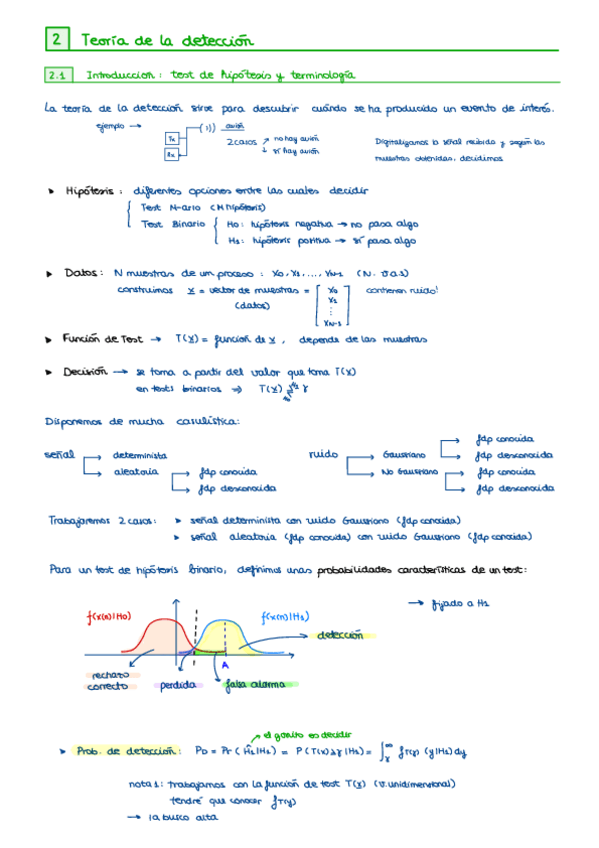 2 Teoría de la detección
2.1 Introduccion: test de hipótesis y terminología
La teoría de la detección sirve para descubrir cuándo se ha producido un evento de interés.
ejemplo → Tx Rx avión 2 casos no hay avión
sí hay avión
Digitalizamos la señal recibida y según las
muestras obtenidas, decidimos
▸ Hipótesis: diferentes opciones entre las cuales decidir
Test M-ario (M hipótesis)
Test Binario H0: hipótesis negativa → no pasa algo
H1: hipótesis positiva → sí pasa algo
▸ Datos: N muestras de un proceso: x0, x1, ..., xN-1 (N. v.a.s)
construimos x = vector de muestras = [x0 x1 ⋮ xN-1] contienen ruido!
(datos)
▸ Función de Test → T(x) = función de x, depende de las muestras
▸ Decisión → se toma a partir del valor que toma T(x)
en tests binarios ⇒ T(x) ≷ γ
Disponemos de mucha casuística:
señal → determinista
→ aleatoria → fdp conocida
→ fdp desconocida
ruido → Gaussiano → fdp conocida
→ fdp desconocida
→ No Gaussiano → fdp conocida
→ fdp desconocida
Trabajaremos 2 casos: ▸ señal determinista con ruido Gaussiano (fdp conocida)
▸ señal aleatoria (fdp conocida) con ruido Gaussiano (fdp conocida)
Para un test de hipótesis binario, definimos unas probabilidades características de un test:
→ fijado a H1
f(x(n)|H0) f(x(n)|H1)
detección
A
rechazo
correcto
perdida
falsa alarma
el gorrito es decidir
▸ Prob. de detección: PD = Pr(Ĥ1|H1) = P(T(x)≥γ|H1) = ∫γ^∞ fT(y) (y|H1) dy
nota 1: trabajamos con la función de test T(x) (v. unidimensional)
tendré que conocer fT(y)
→ la busco alta